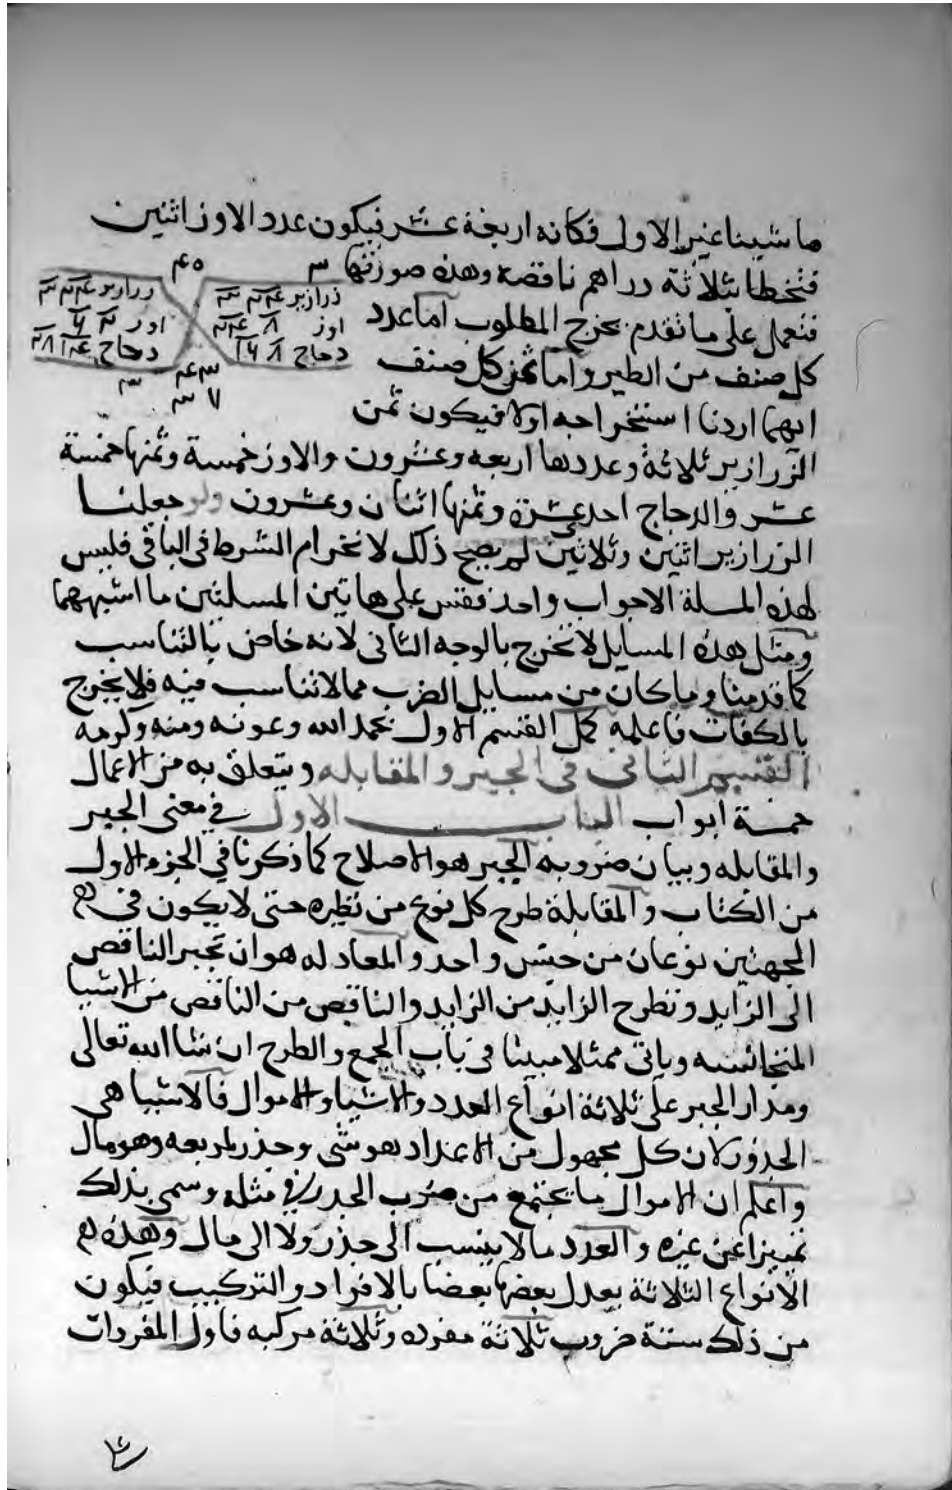 ما شيينا غير الاول فكانه اربعة عشر فيكون عدد الاوز اثنين
فتخطا بثلاثة دراهم ناقصه وهذه صورتها
فتعمل على ما تقدم يخرج المطلوب اما عدد
كل صنف من الطير واما ثمن كل صنف
ايهما اردنا استخراجه اولا فيكون ثمن
الزرازير ثلاثة وعددها اربعه وعشرون والاوز خمسة وثمنها خمسة
عشر والدجاج احد عشرة وثمنها اثنان وعشرون ولو جعلنا
الزرازير اثنين وثلاثين لم يصح ذلك لانخرام الشرط في الباقي فليس
لهذه المسلة الا جواب واحد فقس على هاتين المسلتين ما اشبههما
ومثل هذه المسايل لا تخرج بالوجه الثاني لانه خاص بالتناسب
كما قدمنا وما كان من مسايل الضرب مما لا تناسب فيه فلا يخرج
بالكفات فاعلمه كمل القسم الاول بحمد الله وعونه ومنه وكرمه
القسم الثاني في الجبر والمقابله ويتعلق به من الاعمال
خمسة ابواب الباب الاول في معنى الجبر
والمقابله وبيان ضروبه الجبر هو الاصلاح كما ذكرنا في الجزء الاول
من الكتاب والمقابلة طرح كل نوع من نظيره حتى لا يكون في
الجهتين نوعان من جنس واحد والمعادله هو ان تجبر الناقص
الى الزايد وتطرح الزايد من الزايد والناقص من الناقص من الاشيا
المتجانسه وياتي ممثلا مبينا في باب الجمع والطرح ان شا الله تعالى
ومدار الجبر على ثلاثة انواع العدد والاشيا والاموال فالاشيا هي
الجذور لان كل مجهول من الاعداد هو شي وجذر لمربعه وهو مال
واعلم ان الاموال ما يجتمع من ضرب الجذر في مثله وسمي بذلك
تمييزا عن غيره والعدد ما لا ينسب الى جذر ولا الى مال وهذه
الانواع الثلاثة يعدل بعضها بعضا بالافراد والتركيب فيكون
من ذلك ستة ضروب ثلاثة مفرده وثلاثة مركبه فاول المفردات